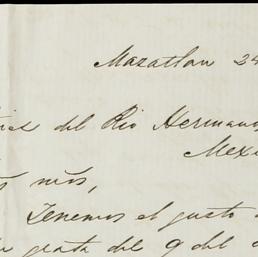 Mazatlan 24
del Rio Hermanos
Mexi
mos,
Tenemos el gusto
grata del 9 del